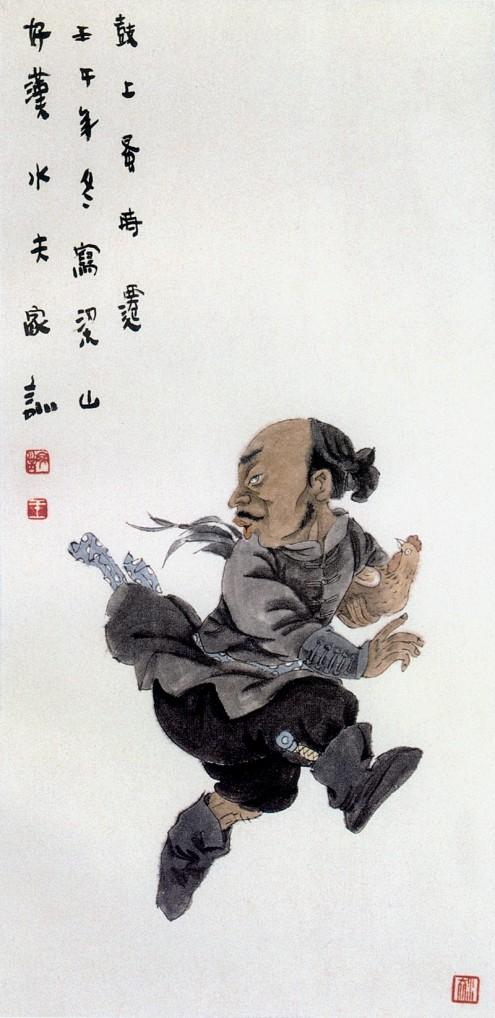 鼓上蚤時遷
壬午年冬寫梁山
好漢水夫家訓